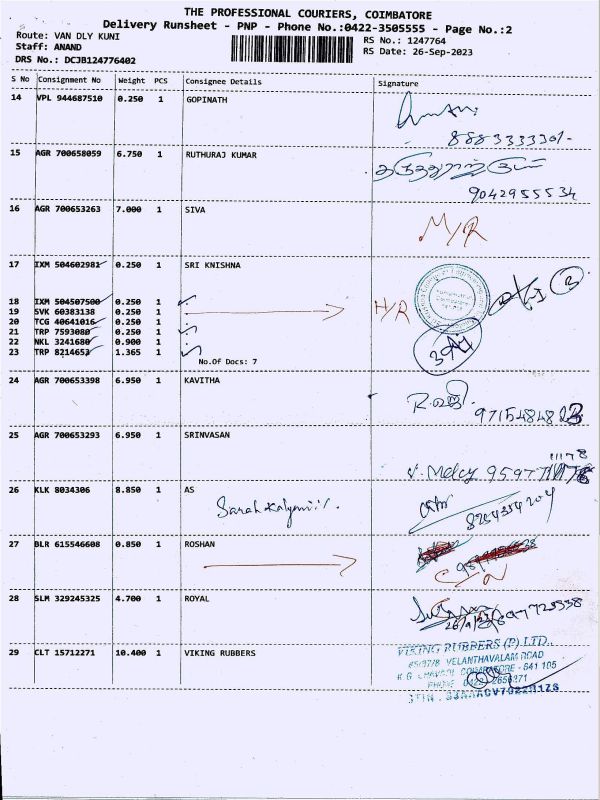 THE PROFESSIONAL COURIERS, COIMBATORE
Delivery Runsheet - PNP - Phone No.:0422-3505555 - Page No.:2
Route: VAN DLY KUNI
RS No.: 1247764
Staff: ANAND
RS Date: 26-Sep-2023
DRS No.: DCJB124776402
S No Consignment No Weight PCS Consignee Details Signature
14 VPL 944687510 0.250 1 GOPINATH
8883333301-
15 AGR 700658059 6.750 1 RUTHURAJ KUMAR
9042955534
16 AGR 700653263 7.000 1 SIVA M/R
17 IXM 504602981 0.250 1 SRI KNISHNA
18 IXM 504507500 0.250 1
19 SVK 60383138 0.250 1 H/R
20 TCG 40641016 0.250 1
21 TRP 7593080 0.250 1
22 NKL 3241680 0.900 1
23 TRP 8214653 1.365 1
No.Of Docs: 7
24 AGR 700653398 6.950 1 KAVITHA
25 AGR 700653293 6.950 1 SRINVASAN
V. Mercy 9597
26 KLK 8034306 8.850 1 AS
8254354204
27 BLR 615546608 0.850 1 ROSHAN
28 SLM 329245325 4.700 1 ROYAL
29 CLT 15712271 10.400 1 VIKING RUBBERS
VIKING RUBBERS (P) LTD.,
VELANTHAVALAM ROAD
COIMBATORE - 641 105
PHONE